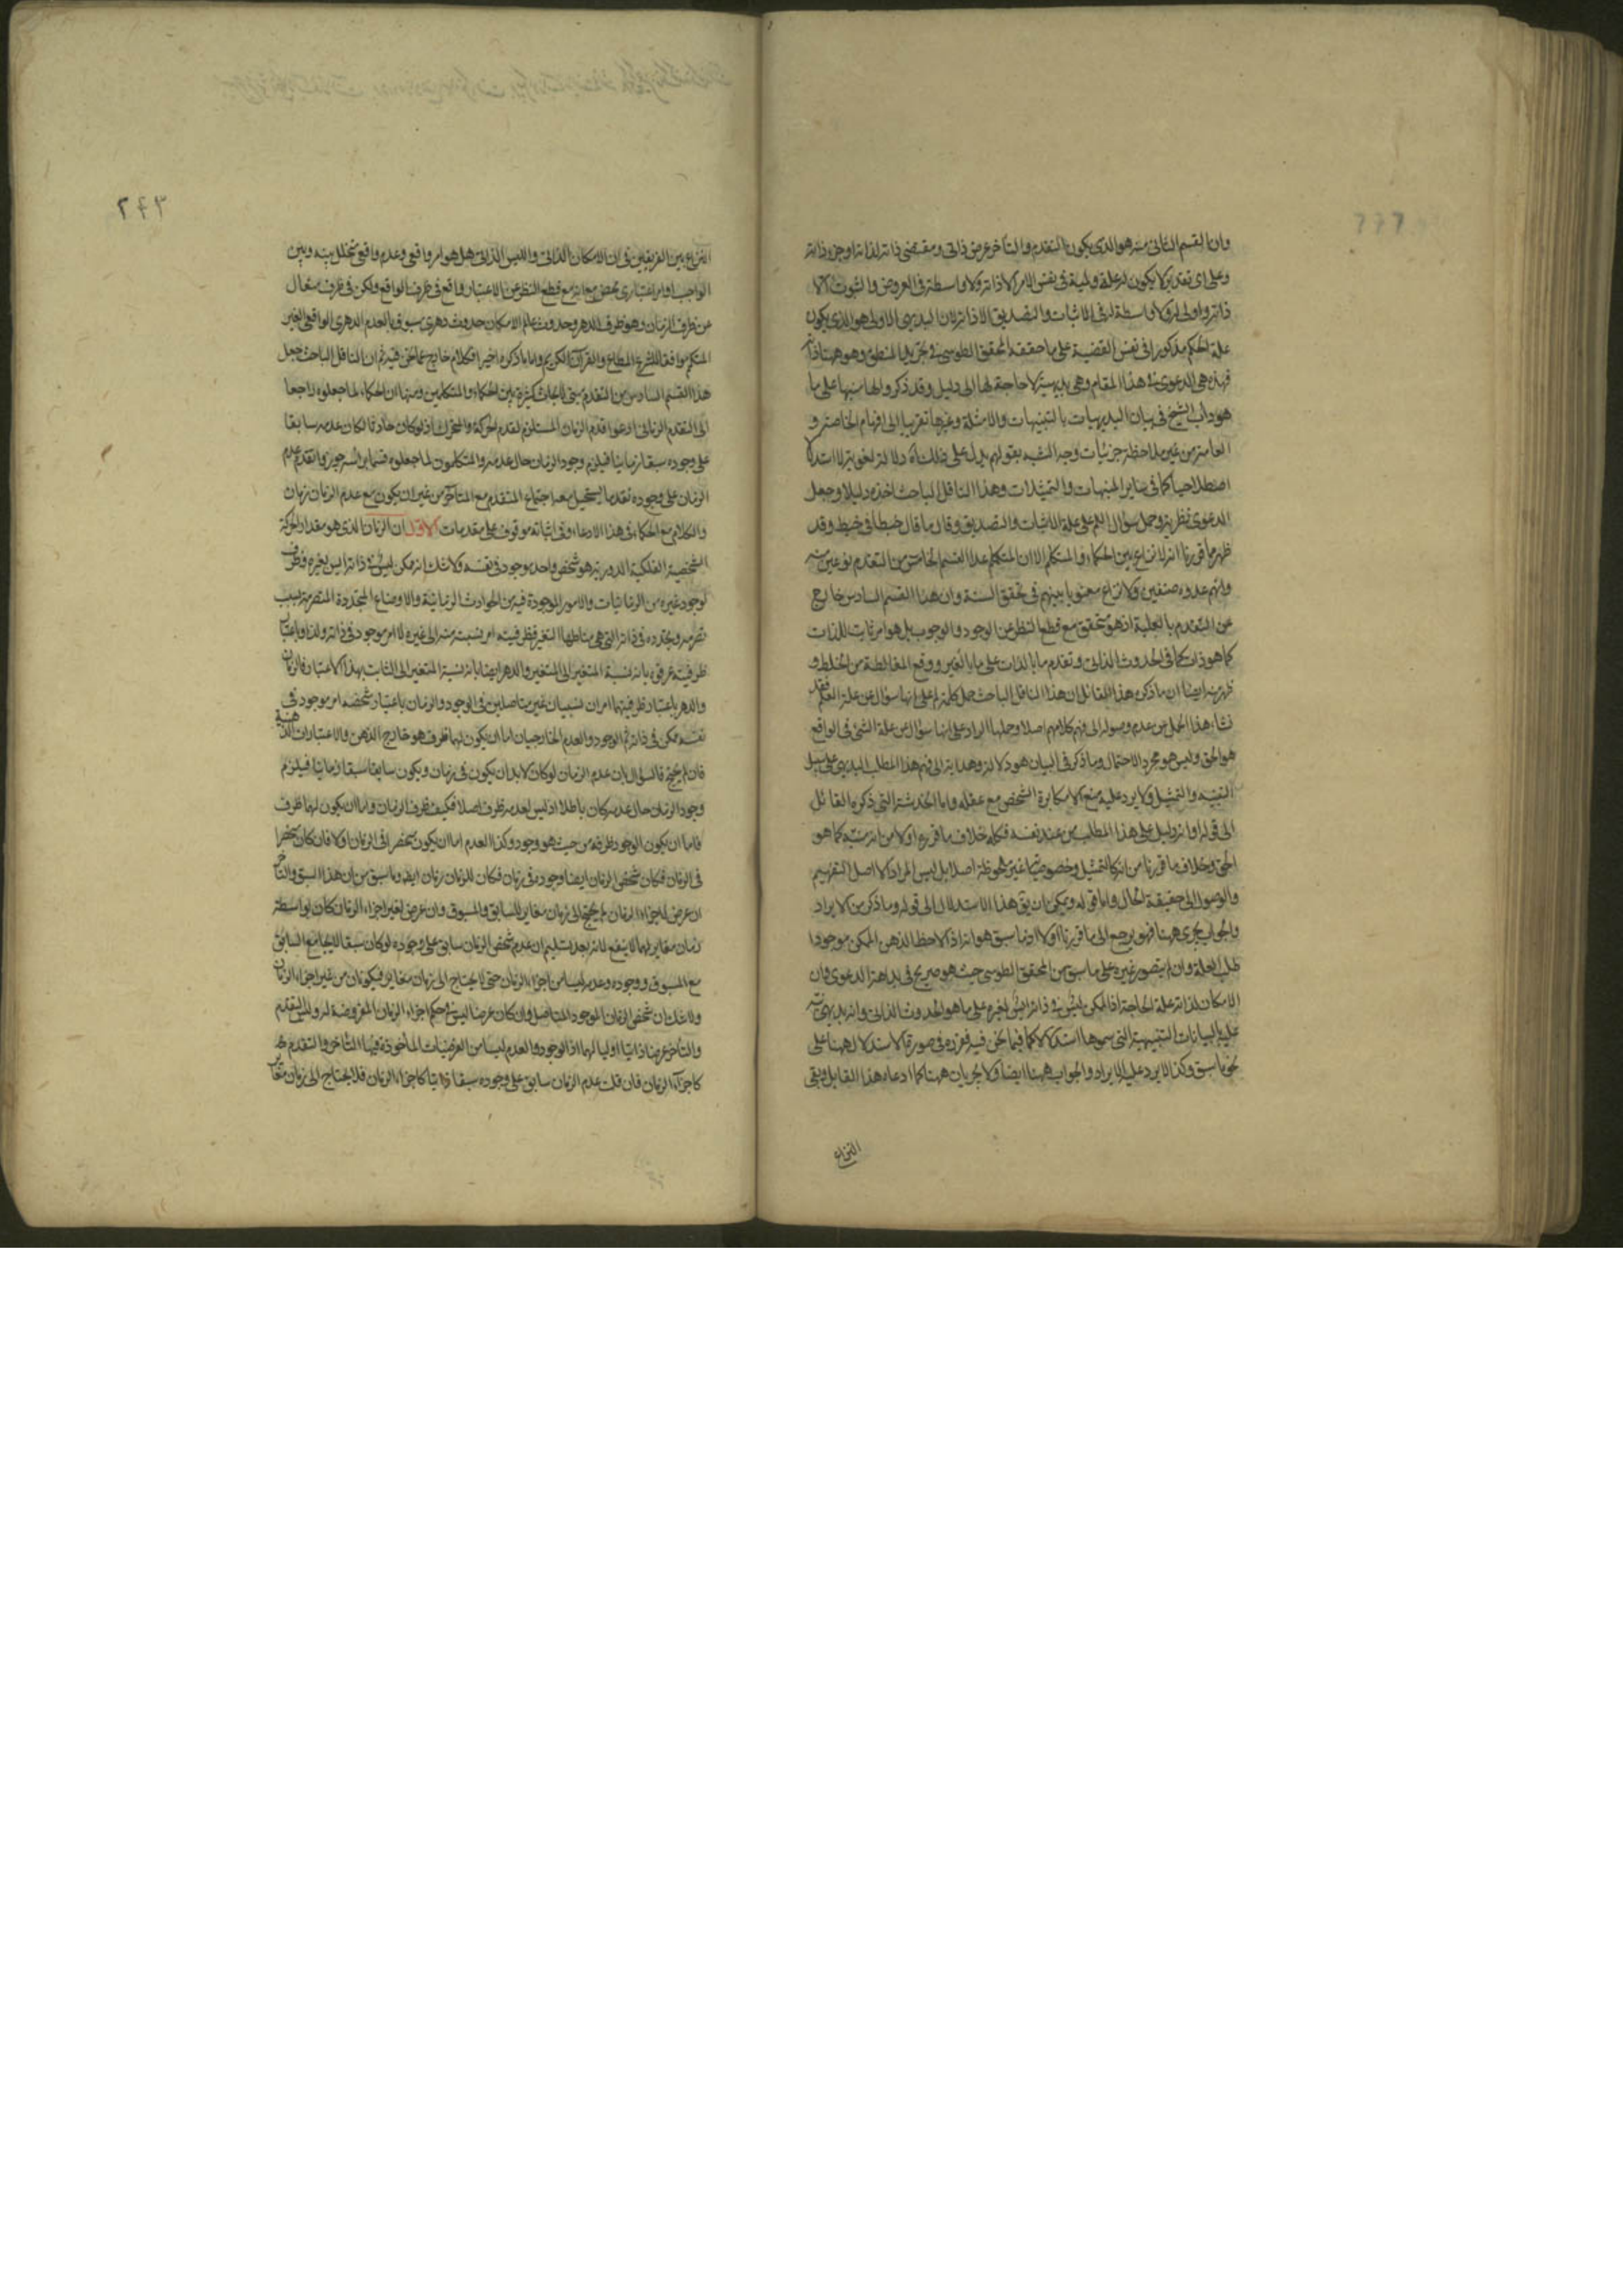 وان القسم الثانى منه هو الذى يكون التقدم والتاخر عرض ذاتى ومقتضى ذاته لذاته او جزء ذاته
وعلى اى تقدير لا يكون له علة ولمية فى نفس الامر الا ذاته ولا واسطة فى العروض والثبوت الا
ذاته واولى له ولا واسطة له فى الاثبات والتصديق الا ذاته لان البديهى الاولى هو الذى يكون
علة الحكم مذكورا فى نفس القضية على ما حققه المحقق الطوسى فى تجريد المنطق وهو ههنا ذاته
فهذه هى الدعوى فى هذا المقام وهى بديهية لا حاجة لها الى دليل وقد ذكروا لها منبها على ما
هو داب الشيخ فى بيان البديهيات بالتنبيهات والامثلة وغيرها تقريبا الى افهام الخاصة و
العامة من غير ملاحظة جزئيات وجه الشبه بقولهم يدل على ذلك اه دلالة لغوية لا استدلالا
اصطلاحيا كما فى ساير المنبهات والتمثيلات وهذا الناقل الباحث اخذه دليلا وجعل
الدعوى نظرية وحمل سؤال اللم على علة الاثبات والتصديق وقال ما قال خبطا فى خبط وقد
ظهر ما قررنا انه لا نزاع بين الحكماء والمتكلم الا ان المتكلم عد القسم الخامس من التقدم نوعين منه
وانهم عدوه صنفين ولا نزاع معنويا بينهم فى تحقق الستة وان هذا القسم السادس خارج
عن التقدم بالعلية اذ هو متحقق مع قطع النظر عن الوجود والوجوب بل هو امر ثابت للذات
كما هو ذات كما فى الحدوث الذاتى وتقدم ما بالذات على ما بالغير ووقع المغالطة من الخلط و
ظهر منه ايضا ان ما ذكره هذا القائل ان هذا الناقل الباحث حمل كلمة لم على انها سؤال عن علة العلم فقد
نشاء هذا الحمل من عدم وصوله الى فهم كلامهم اصلا وحملها المراد على انها سؤال عن علة الشئ فى الواقع
هو الحق وليس هو مجرد الاحتمال وما ذكر فى البيان هو دلالة وهداية الى فهم هذا المطلب البديهى على سبيل
التنبيه والتمثيل ولا يرد عليه منع الا مكابرة الشخص مع عقله واما الخدشة التى ذكره القائل
الى قوله او انه دليل على هذا المطلب من عند نفسه فكله خلاف ما قرره اولا من انه منبه كما هو
الحق وخلاف ما قررنا من انه كالتمثيل وخصوصياتها غير ملحوظة اصلا بل ليس المراد الا اصل التفهيم
والوصول الى حقيقة الحال واما قوله ويمكن ان يق هذا الاستدلال الى قوله وما ذكر من الايراد
والجواب يجرى ههنا فهو يرجع الى ما قررنا اولا اذ ما سبق هو انه اذا لاحظ الذهن الممكن موجودا
طلب العلة وان لم يتصور غيره على ما سبق من المحقق الطوسى حيث هو صريح فى بداهة الدعوى وان
الامكان لذاته علة الحاجة اذ الممكن ليس فى ذاته ايس لغيره على ما هو الحدوث الذاتى وانه بديهى نبه
عليه بالبيانات التنبيهية التى سموها استدلالا كما فيما نحن فيه فقرره فى صورة الاستدلال ههنا على
نحو ما سبق وكذا لا يرد عليه الايراد والجواب ههنا ايضا ولا يجريان ههنا كما ادعاه هذا القايل وبقى
النزاع
٢٤٣
النزاع بين الفريقين فى ان الامكان الذاتى والليس الذاتى هل هو امر واقعى وعدم واقعى تخلل بينه وبين
الواجب او امر اعتبارى محض مع انه مع قطع النظر عن الاعتبار واقع فى ظرف الواقع ولكن فى ظرف متعال
عن ظرف الزمان وهو ظرف الدهر وحدوث عالم الامكان حدوث دهرى مسبوق بالعدم الدهرى الواقعى الغير
المتكمم موافقا للشرع المطاع والقران الكريم واما ما ذكره اخيرا فكلام خارج عما نحن فيه ثم ان الناقل الباحث جعل
هذا القسم السادس من التقدم مبنى لابحاث كثيرة بين الحكماء والمتكلمين ومنها ان الحكماء لما جعلوه راجعا
الى التقدم الزمانى ادعوا قدم الزمان المستلزم لقدم الحركة والمتحرك اذ لو كان حادثا لكان عدمه سابقا
على وجوده سبقا زمانيا فيلزم وجود الزمان حال عدمه والمتكلمون لما جعلوه قسما براسه جوزوا تقدم عدم
الزمان على وجوده تقدما يستحيل معه اجتماع المتقدم مع المتاخر من غير ان يكون مع عدم الزمان زمان
والكلام مع الحكماء فى هذا الادعاء وفى اثباته موقوف على مقدمات الاول ان الزمان الذى هو مقدار الحركة
الشخصية الفلكية الدورية هو شخص واحد موجود فى نفسه ولا شك انه ممكن ليس فى ذاته ايس لغيره وظرف
لوجود غيره من الزمانيات والامور الموجودة فيه من الحوادث الزمانية والاوضاع المتجددة المتصرمة بسبب
تصرمه وتجدده فى ذاته التى هى مناطها التغير فظرفيته امر نسبت منه الى غيره لا امر موجود فى ذاته ولذا واعتبار
ظرفيته عرفوه بانه نسبة المتغير الى المتغير والدهر ايضا بانه نسبة المتغير الى الثابت بهذا الاعتبار فالزمان
والدهر باعتبار ظرفيتهما امران نسبيان غير متاصلين فى الوجود والزمان باعتبار شخصه امر موجود فى
نفسه ممكن فى ذاته ثم الوجود والعدم الخارجيان اما ان يكون لهما ظرف هو خارج الذهن والاعتبارات الذهنية
فان لم يحتج فالسؤال بان عدم الزمان لو كان لابد ان يكون فى زمان ويكون سابقا سبقا زمانيا فيلزم
وجود الزمان حال عدمه كان باطلا اذ ليس لعدمه ظرف اصلا فكيف ظرف الزمان واما ان يكون لهما ظرف
فاما ان يكون الوجود ظرفه من حيث هو وجود وكذا العدم اما ان يكون منحصرا فى الزمان او لا فان كان منحصرا
فى الزمان فكان شخص الزمان ايضا وجوده فى زمان فكان للزمان زمان ايضا وما سبق من ان هذا السبق والتاخر
ان عرض لاجزاء الزمان لم يحتج الى زمان مغاير للسابق والمسبوق وان عرض لغير اجزاء الزمان كان بواسطة
زمان مغاير لهما لا ينفع لانه بعد تسليم ان عدم شخص الزمان سابق على وجوده لو كان سبقا لا يجامع السابق
مع المسبوق ووجوده وعدمه ليسا من اجزاء الزمان حتى لا يحتاج الى زمان مغاير فيكونان من غير اجزاء الزمان
ولا شك ان شخص الزمان الموجود المتاصل وان كان عرضا ليس فى حكم اجزاء الزمان المفروضة له وليس التقدم
والتاخر عرضا ذاتيا اوليا لهما اذ الوجود والعدم ليسا من العرضيات الماخوذة فيها التاخر والتقدم
كاجزاء الزمان فان قلت عدم الزمان سابق على وجوده سبقا ذاتيا كاجزاء الزمان فلا يحتاج الى زمان مغاير